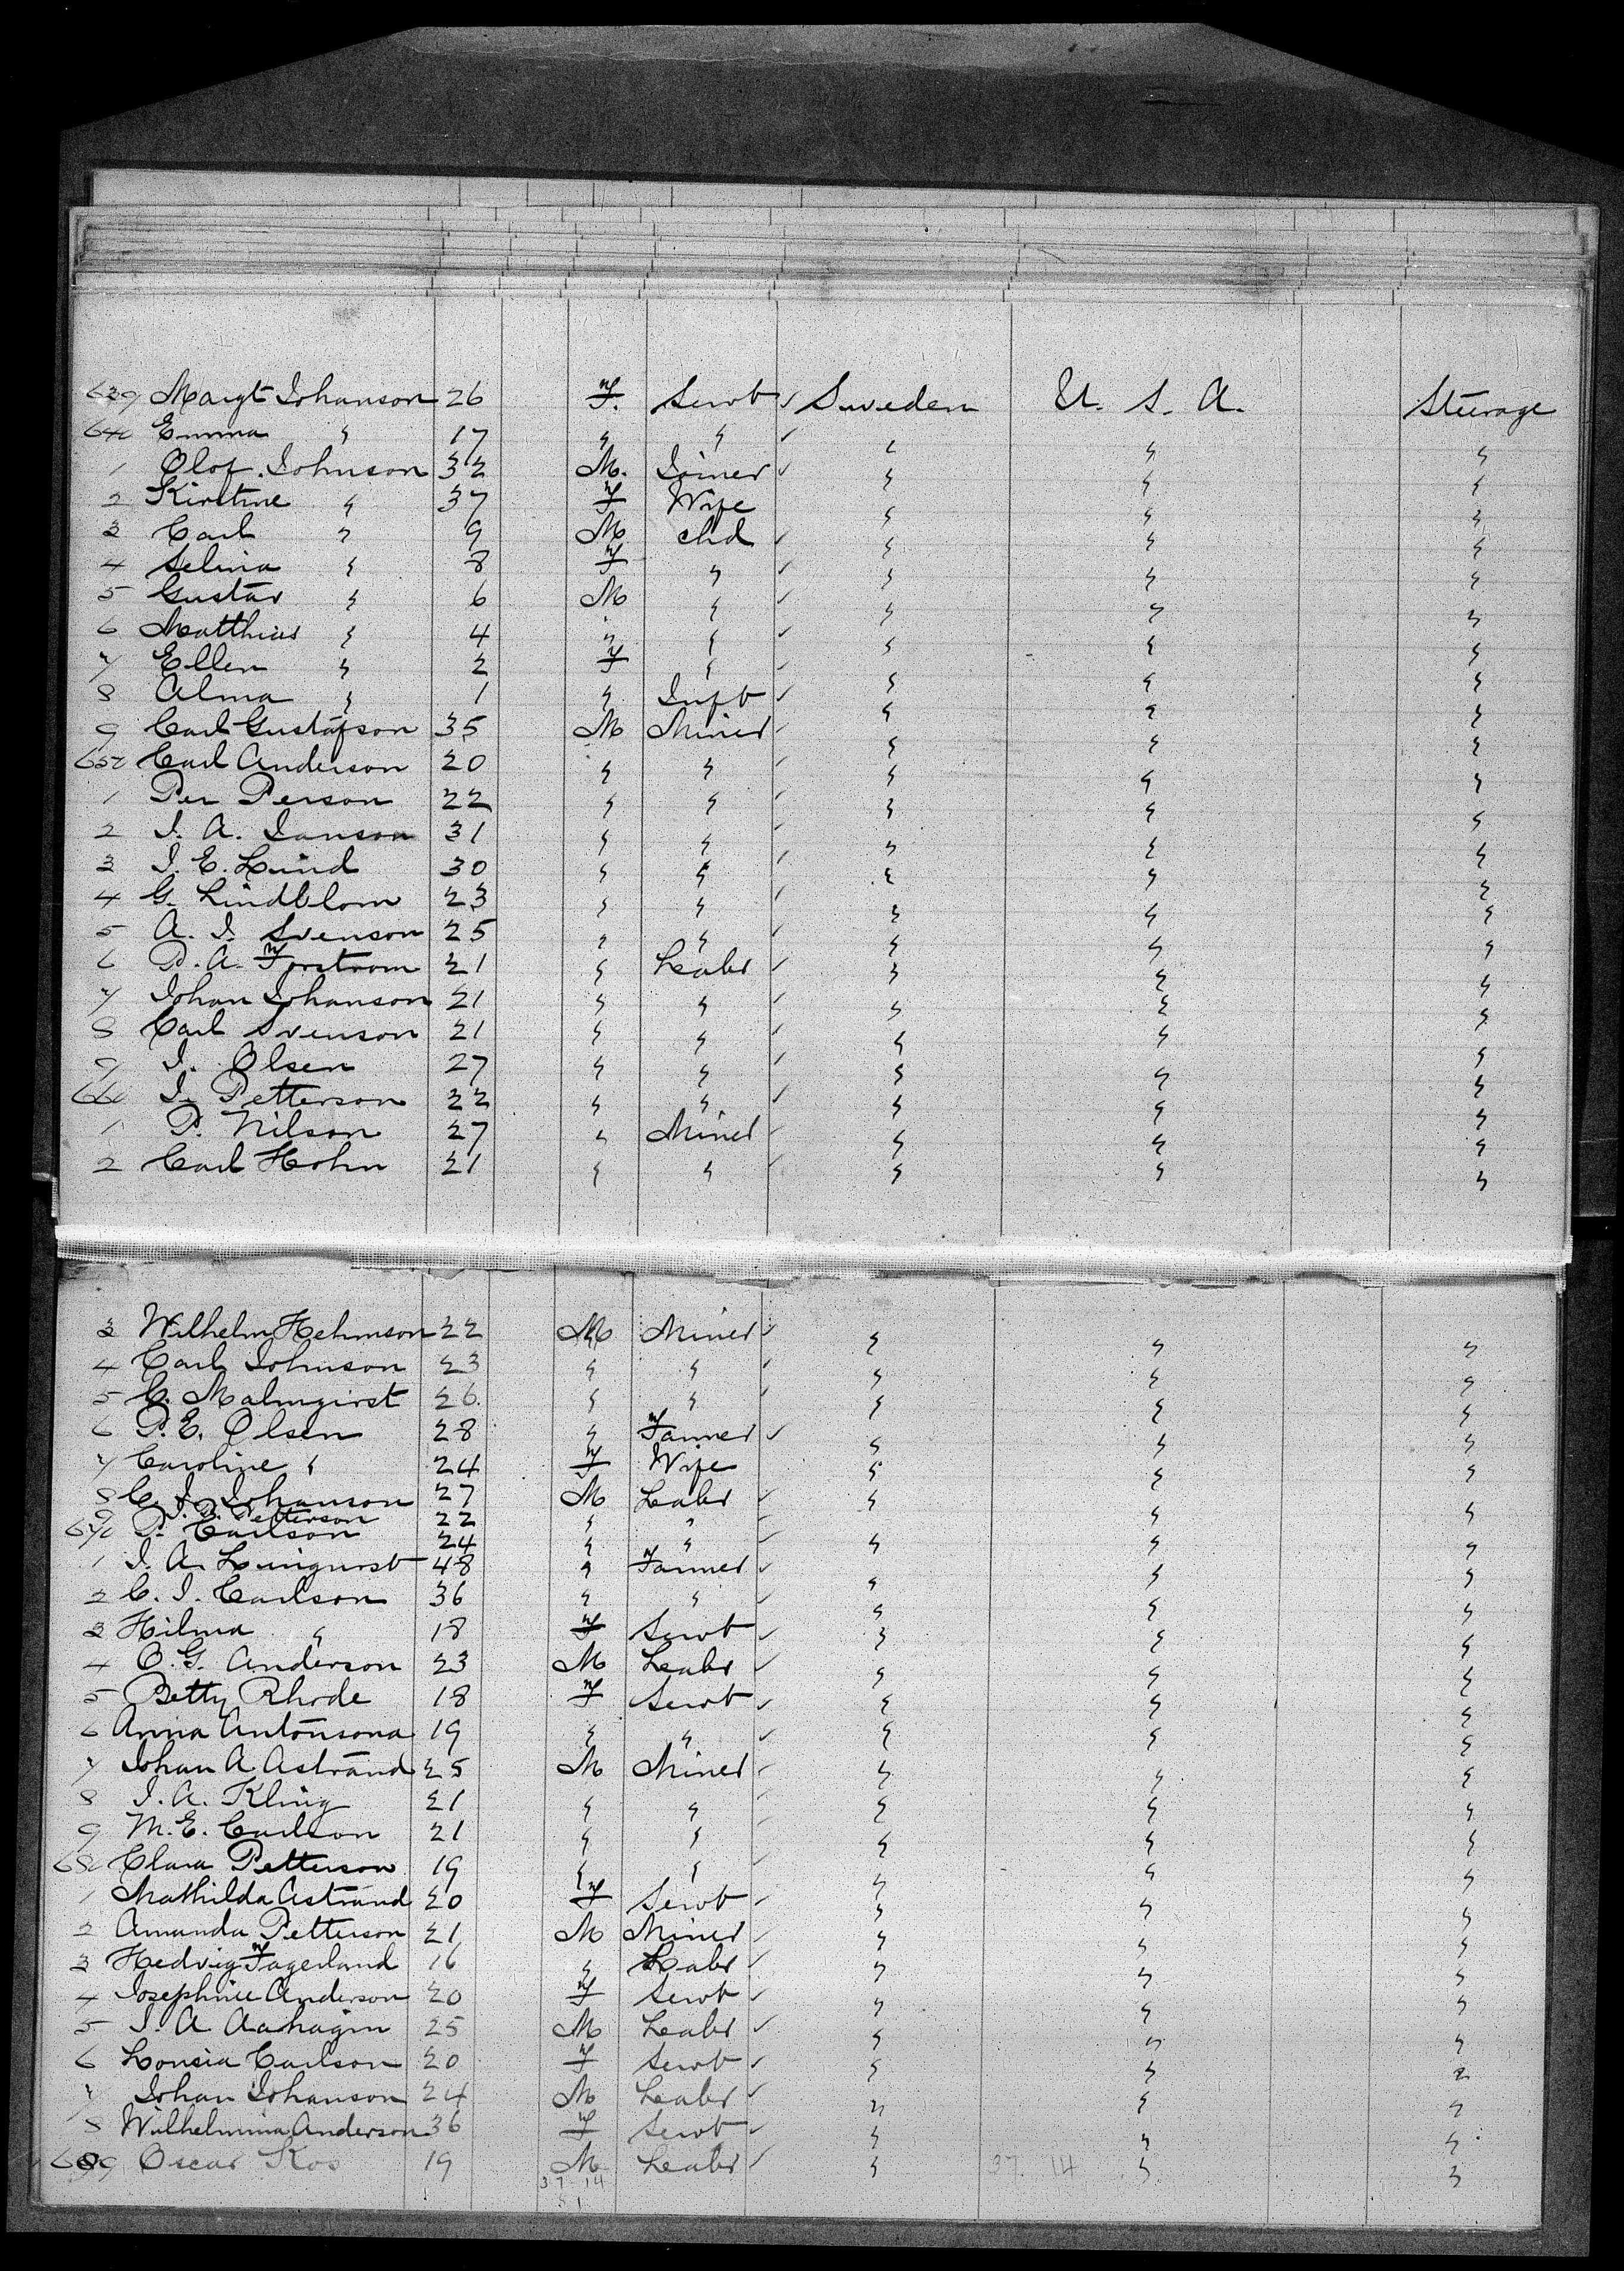 639 Margt Johanson 26 F. Servt ✓ Sweden U. S. A. Steerage
640 Emma " 17 " " ✓ " " "
1 Olof Johnson 32 M. Joiner ✓ " " "
2 Kirstine " 37 F Wife " " "
3 Carl " 9 M chd ✓ " " "
4 Selina " 8 F " ✓ " " "
5 Gustav " 6 M " ✓ " " "
6 Matthias " 4 " " ✓ " " "
7 Ellen " 2 F " ✓ " " "
8 Alma " 1 " Inft ✓ " " "
9 Carl Gustafson 35 M Miner ✓ " " "
650 Carl Anderson 20 " " ✓ " " "
1 Per Person 22 " " ✓ " " "
2 J. A. Janson 31 " " ✓ " " "
3 J. E. Lund 30 " " ✓ " " "
4 G. Lindblom 23 " " ✓ " " "
5 A. J. Svenson 25 " " ✓ " " "
6 P. A. Forstrom 21 " Labr ✓ " " "
7 Johan Johanson 21 " " ✓ " " "
8 Carl Svenson 21 " " ✓ " " "
9 J. Olsen 27 " " ✓ " " "
660 J. Petterson 22 " " ✓ " " "
1 P. Nilson 27 " Miner ✓ " " "
2 Carl Hohn 21 " " ✓ " " "
3 Wilhelm Hehmson 22 M Miner ✓ " " "
4 Carl Johnson 23 " " ✓ " " "
5 C. Malmqirst 26 " " ✓ " " "
6 P. E. Olsen 28 " Farmer ✓ " " "
7 Caroline " 24 F Wife " " "
8 C. J. Johanson 27 M Labr ✓ " " "
9 J. P. Petterson 22 " " " " "
670 P. Carlson 24 " " ✓ " " "
1 J. A. Lunqurst 48 " Farmer ✓ " " "
2 C. J. Carlson 36 " " " " "
3 Hilma " 18 F Servt ✓ " " "
4 O. G. Anderson 23 M Labr ✓ " " "
5 Betty Rhode 18 F Servt ✓ " " "
6 Anna Antonsona 19 " " ✓ " " "
7 Johan A Astrand 25 M Miner ✓ " " "
8 J. A. Kling 21 " " ✓ " " "
9 M. E. Carlson 21 " " ✓ " " "
680 Clara Petterson 19 " " ✓ " " "
1 Mathilda Astrand 20 F Servt ✓ " " "
2 Amanda Petterson 21 M Miner ✓ " " "
3 Hedvig Fagerland 16 " Labr ✓ " " "
4 Josephine Anderson 20 F Servt ✓ " " "
5 J. A Aahagin 25 M Labr ✓ " " "
6 Lousia Carlson 20 F Servt ✓ " " "
7 Johan Johanson 24 M Labr ✓ " " "
8 Wilhelmina Anderson 36 F Servt ✓ " " "
689 Oscar Kos 19 M Labr ✓ " 37 14 " "
37 14
51